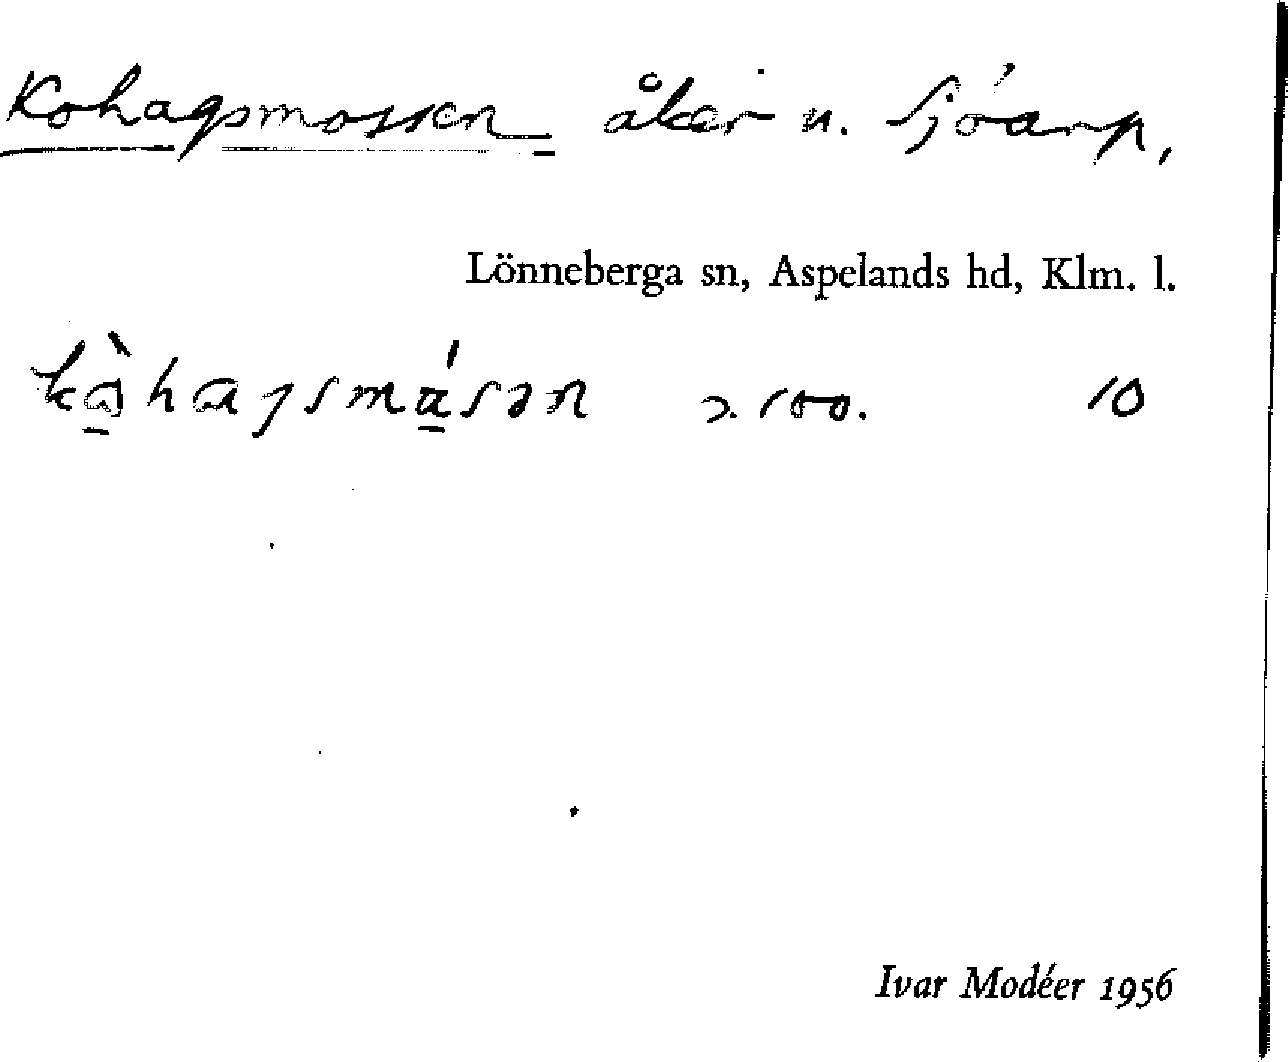 Kohagsmossen åker u. Sjöarp,
Lönneberga sn, Aspelands hd, Klm. l.
kàhagsmásən 10
Ivar Modéer 1956